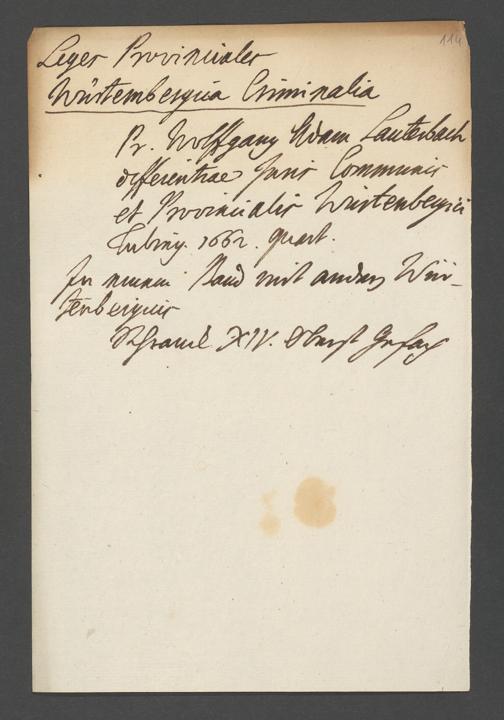 114
Leges Provinciales
Würtembergica Criminalia
Dr. Wolffgang Adam Lauterbach
differentiae Juris Communis
et Provincialis Würtenbergici
Tubing. 1662. quart.
In einem Band mit andern Wür-
tenbergicis
Schranck XIV. Oberst Gefach